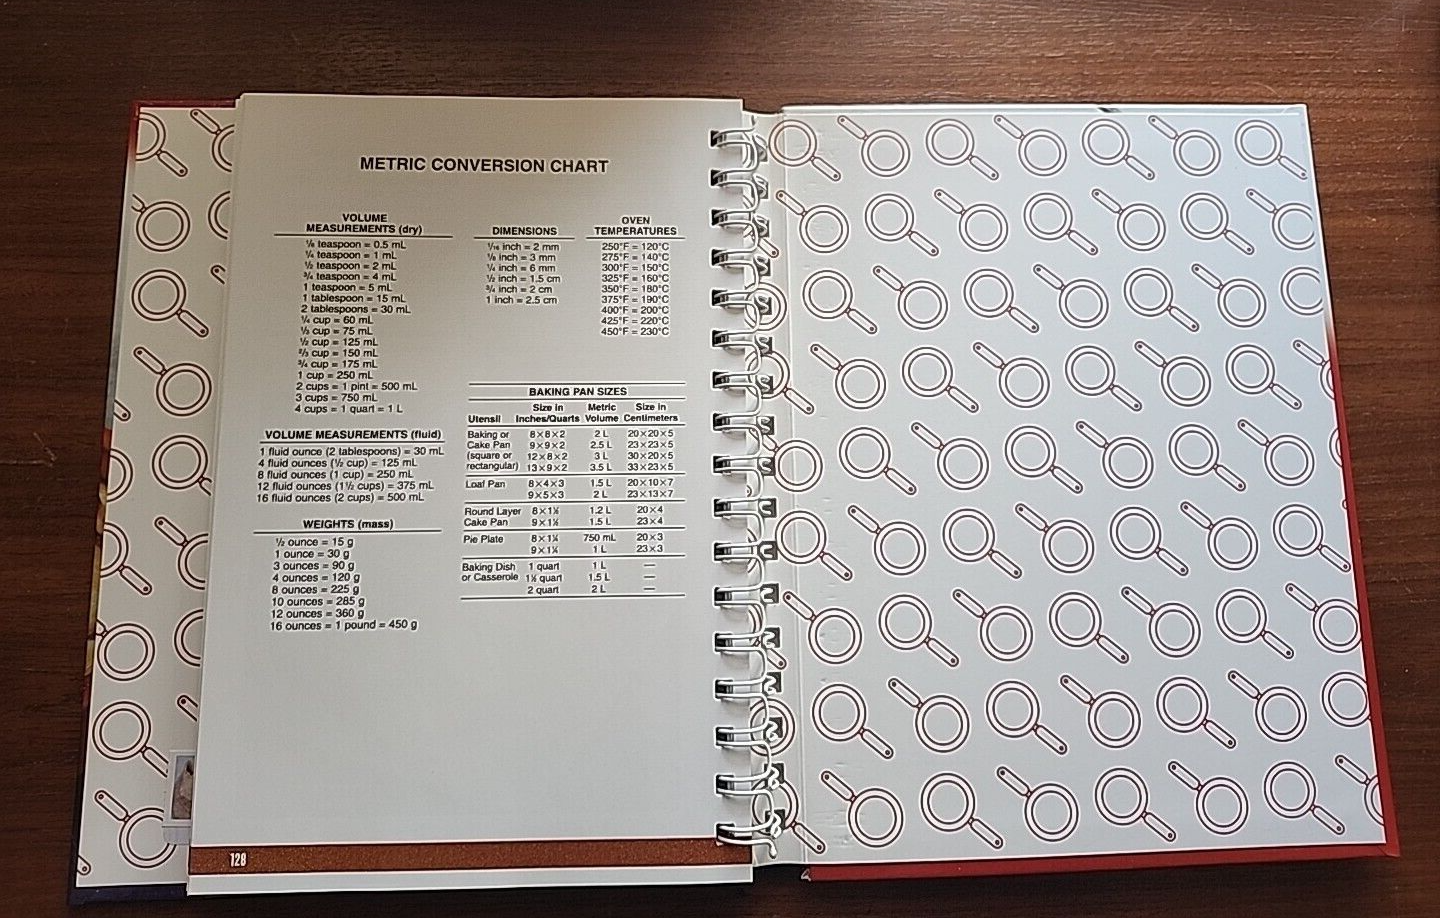 METRIC CONVERSION CHART
VOLUME
MEASUREMENTS (dry)
⅛ teaspoon = 0.5 mL
¼ teaspoon = 1 mL
½ teaspoon = 2 mL
¾ teaspoon = 4 mL
1 teaspoon = 5 mL
1 tablespoon = 15 mL
2 tablespoons = 30 mL
¼ cup = 60 mL
⅓ cup = 75 mL
½ cup = 125 mL
⅔ cup = 150 mL
¾ cup = 175 mL
1 cup = 250 mL
2 cups = 1 pint = 500 mL
3 cups = 750 mL
4 cups = 1 quart = 1 L
VOLUME MEASUREMENTS (fluid)
1 fluid ounce (2 tablespoons) = 30 mL
4 fluid ounces (½ cup) = 125 mL
8 fluid ounces (1 cup) = 250 mL
12 fluid ounces (1½ cups) = 375 mL
16 fluid ounces (2 cups) = 500 mL
WEIGHTS (mass)
½ ounce = 15 g
1 ounce = 30 g
3 ounces = 90 g
4 ounces = 120 g
8 ounces = 225 g
10 ounces = 285 g
12 ounces = 360 g
16 ounces = 1 pound = 450 g
DIMENSIONS
1/16 inch = 2 mm
⅛ inch = 3 mm
¼ inch = 6 mm
½ inch = 1.5 cm
¾ inch = 2 cm
1 inch = 2.5 cm
OVEN
TEMPERATURES
250°F = 120°C
275°F = 140°C
300°F = 150°C
325°F = 160°C
350°F = 180°C
375°F = 190°C
400°F = 200°C
425°F = 220°C
450°F = 230°C
BAKING PAN SIZES
Size in Metric Size in
Utensil Inches/Quarts Volume Centimeters
Baking or 8×8×2 2 L 20×20×5
Cake Pan 9×9×2 2.5 L 23×23×5
(square or 12×8×2 3 L 30×20×5
rectangular) 13×9×2 3.5 L 33×23×5
Loaf Pan 8×4×3 1.5 L 20×10×7
9×5×3 2 L 23×13×7
Round Layer 8×1½ 1.2 L 20×4
Cake Pan 9×1½ 1.5 L 23×4
Pie Plate 8×1¼ 750 mL 20×3
9×1¼ 1 L 23×3
Baking Dish 1 quart 1 L —
or Casserole 1½ quart 1.5 L —
2 quart 2 L —
128